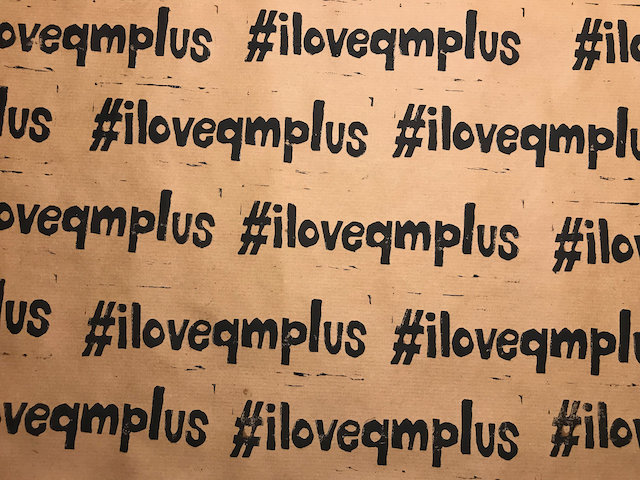 oveqmplus #iloveqmplus #il
lus #iloveqmplus #iloveqmplu
oveqmplus #iloveqmplus #ilo
lus #iloveqmplus #iloveqmplu
veqmplus #iloveqmplus #ilo